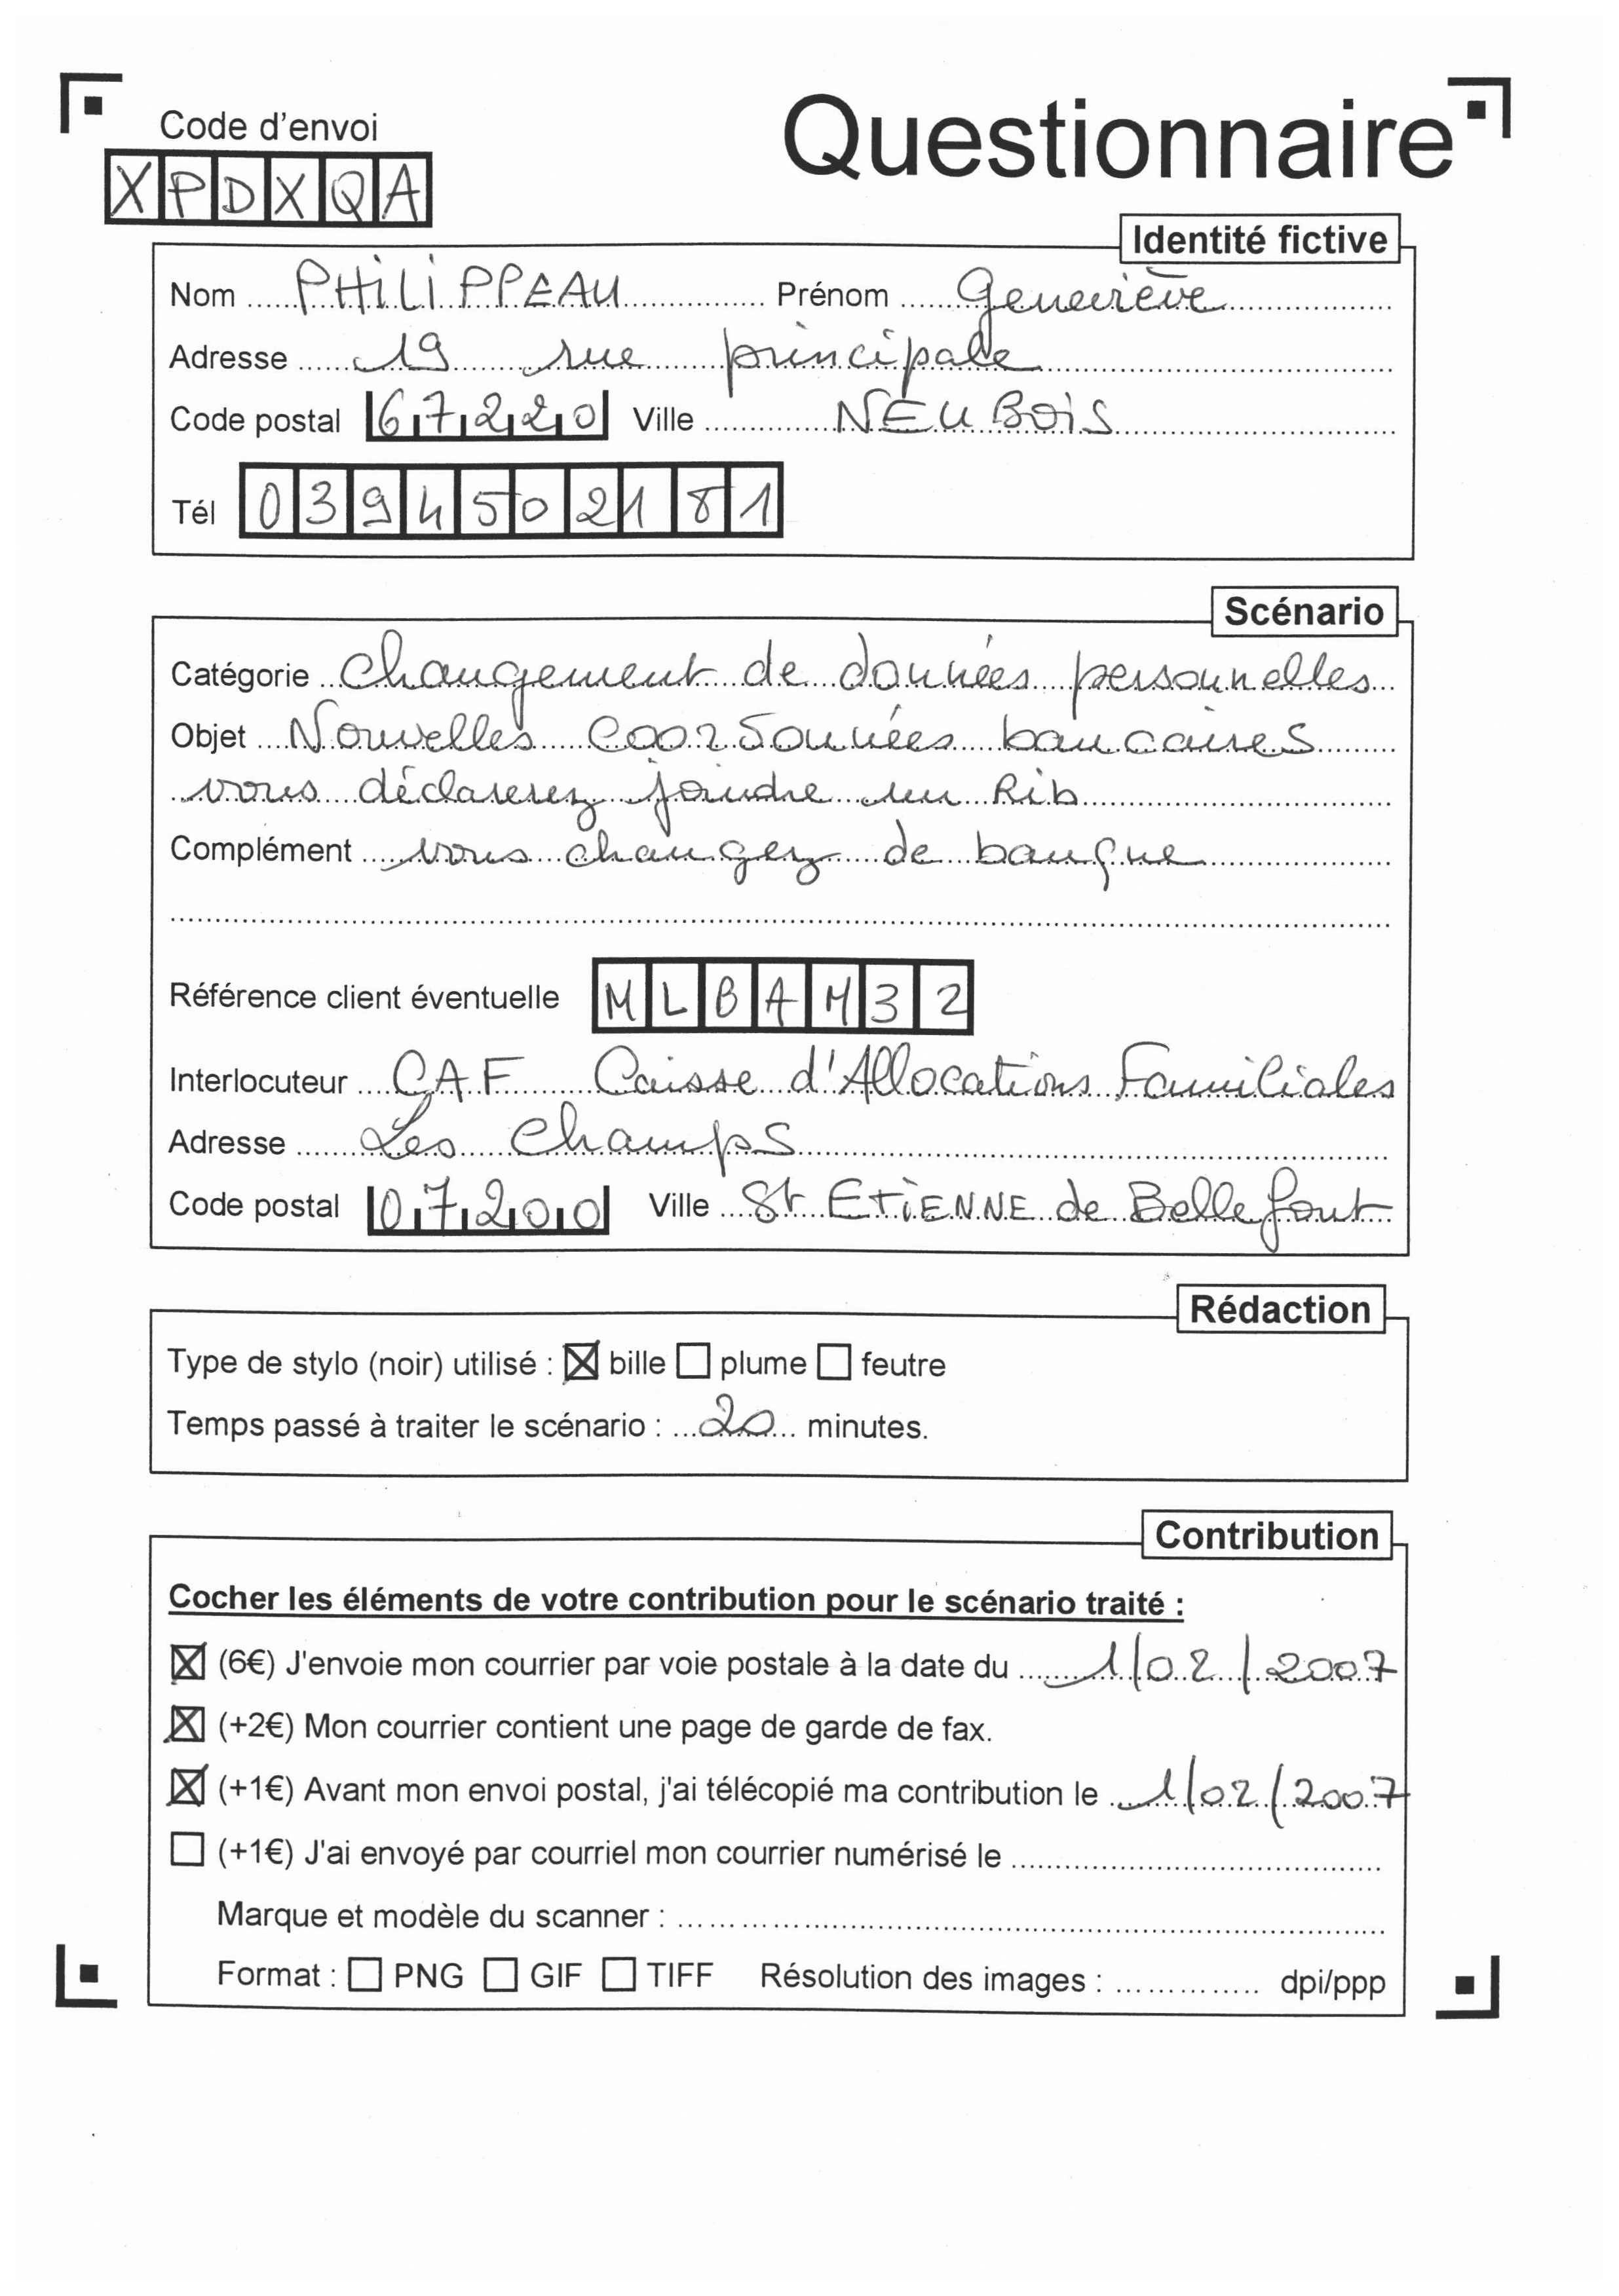 Code d'envoi
Questionnaire
XPDXQA
Identité fictive
Nom PHiLiPPEAU Prénom Geneviève
Adresse 19 rue principale
Code postal 67220 Ville NEUBOiS
Tél 0394502181
Scénario
Catégorie Changement de données personnelles
Objet Nouvelles coordonnées bancaires
vous déclarerez joindre un Rib
Complément vous changez de banque
Référence client éventuelle MLBAM32
Interlocuteur CAF Caisse d'Allocations Familiales
Adresse Les Champs
Code postal 07200 Ville St ETiENNE de Bellefont
Rédaction
Type de stylo (noir) utilisé : ☒ bille ☐ plume ☐ feutre
Temps passé à traiter le scénario : 20 minutes.
Contribution
Cocher les éléments de votre contribution pour le scénario traité :
☒ (6€) J'envoie mon courrier par voie postale à la date du 1/02/2007
☒ (+2€) Mon courrier contient une page de garde de fax.
☒ (+1€) Avant mon envoi postal, j'ai télécopié ma contribution le 1/02/2007
☐ (+1€) J'ai envoyé par courriel mon courrier numérisé le
Marque et modèle du scanner :
Format : ☐ PNG ☐ GIF ☐ TIFF Résolution des images : dpi/ppp